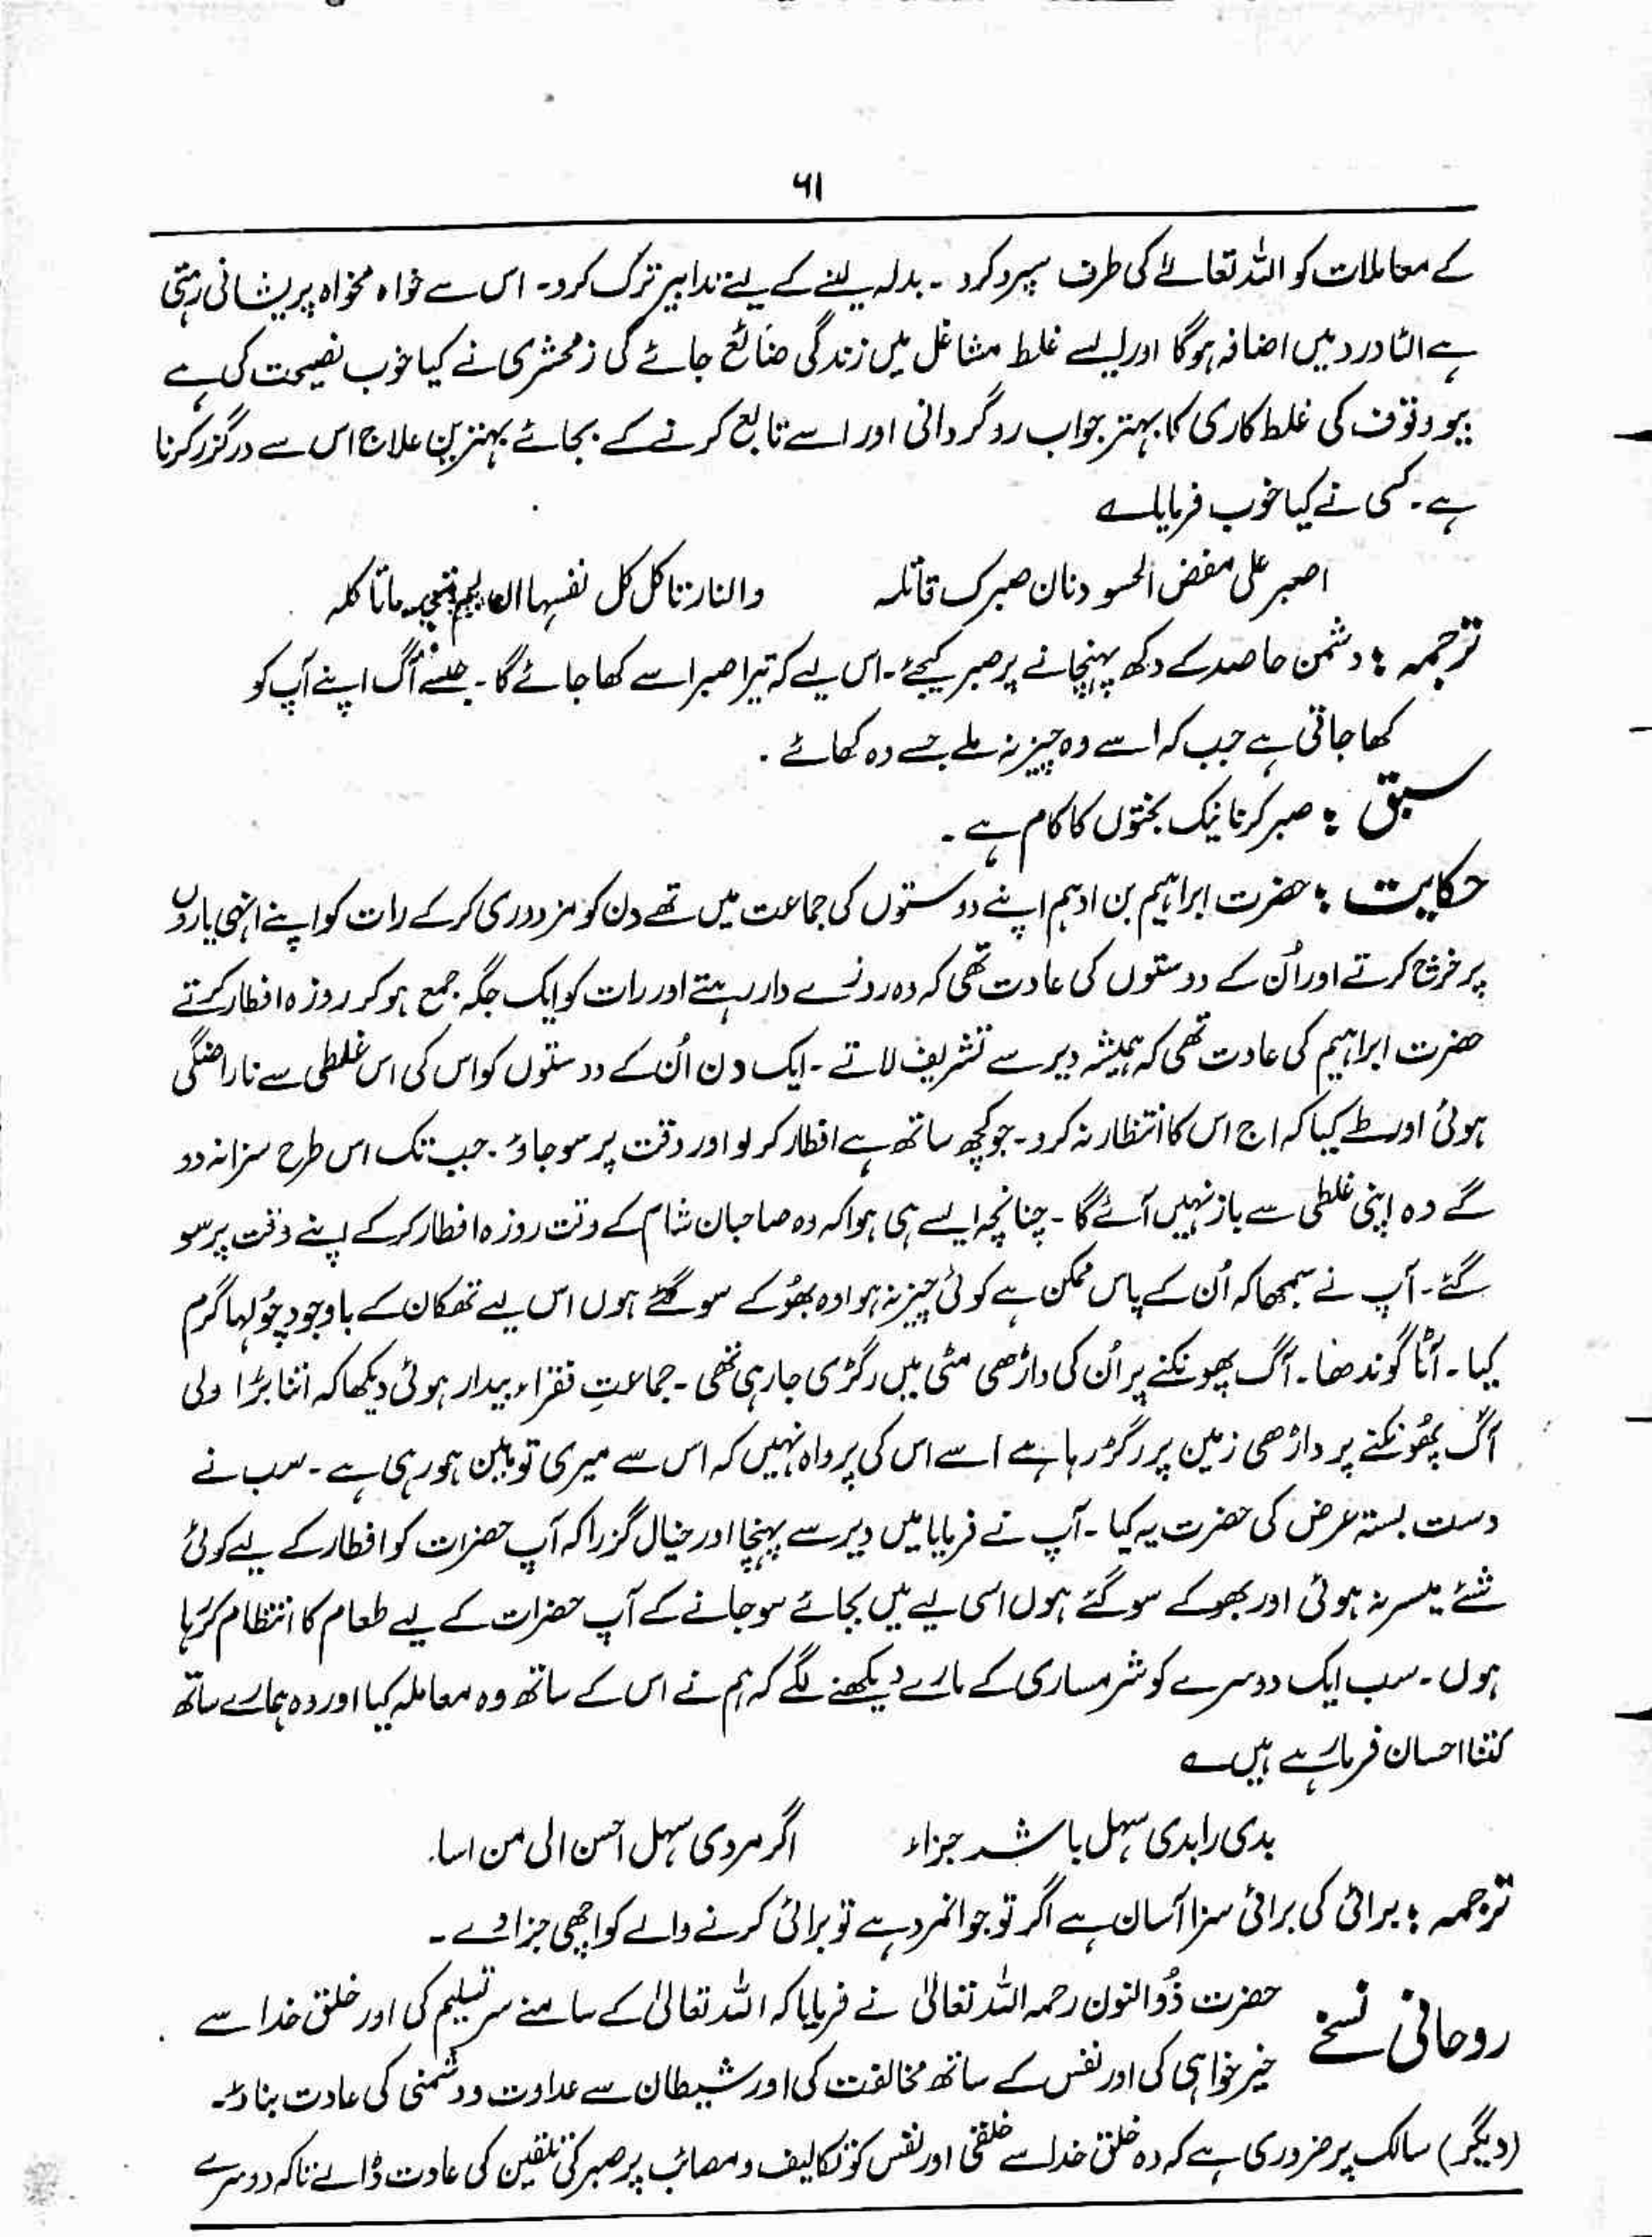 ۶۱
کے معاملات کو اللہ تعالےٰ کی طرف سپرد کرد ۔ بدلہ لینے کے لیئے تدابیر ترک کردو۔ اس سے خواہ مخواہ پریشانی رہتی
ہے الٹا درد میں اضافہ ہوگا اور ایسے غلط مشاغل میں زندگی ضائع جائے گی زمخشری نے کیا خوب نصیحت کی ہے
بیوقوف کی غلط کاری کا بہتر جواب روگردانی اور اسے تابع کرنے کے بجائے بہترین علاج اس سے درگزر کرنا
ہے ۔ کسی نے کیا خوب فرمایا ؎
اصبر علی مضض الحسود فان صبرک قاتلہ والنار تاکل کل نفسہا ان لم تجد ما تاکلہ
ترجمہ : دشمن حاصد کے دکھ پہنچانے پر صبر کیجئے ۔ اس لیے کہ تیرا صبر اسے کھا جائے گا ۔ جلسے آگ اپنے آپ کو
کھا جاتی ہے جب کہ اسے وہ چیز نہ ملے جسے وہ کھائے ۔
سبق : صبر کرنا نیک بختوں کا کام ہے ۔
حکایت : حضرت ابراہیم بن ادہم اپنے دوستوں کی جماعت میں تھے دن کو مزدوری کرکے رات کو اپنے انہی یاروں
پر خرچ کرتے اور اُن کے دوستوں کی عادت تھی کہ وہ روزے دار رہتے اور رات کو ایک جگہ جمع ہو کر روزہ افطار کرتے
حضرت ابراہیم کی عادت تھی کہ ہمیشہ دیر سے تشریف لاتے ۔ ایک دن اُن کے دوستوں کو اس کی اس غلطی سے ناراضگی
ہوئی اور طے کیا کہ اج اس کا انتظار نہ کرد ۔ جو کچھ ساتھ ہے افطار کرلو اور وقت پر سو جاؤ ۔ جب تک اس طرح سزا نہ دو
گے وہ اپنی غلطی سے باز نہیں آئے گا ۔ چنانچہ ایسے ہی ہوا کہ وہ صاحبان شام کے وقت روزہ افطار کرکے اپنے وقت پر سو
گئے ۔ آپ نے سمجھا کہ اُن کے پاس ممکن ہے کوئی چیز نہ ہو اوہ بھُوکے سو گئے ہوں اس لیے تھکان کے باوجود چُولہا گرم
کیا ۔ آٹا گوندھا ۔ آگ پھونکنے پر اُن کی داڑھی مٹی میں رگڑی جارہی تھی ۔ جماعتِ فقراء بیدار ہوئی دیکھا کہ اتنا بڑا ولی
آگ پھُونکنے پر داڑھی زمین پر رگڑ رہا ہے اسے اس کی پرواہ نہیں کہ اس سے میری توہین ہو رہی ہے ۔ سب نے
دست بستہ عرض کی حضرت یہ کیا ۔ آپ نے فرمایا میں دیر سے پہنچا اور خیال گزرا کہ آپ حضرات کو افطار کے لیے کوئی
شئے میسر نہ ہوئی اور بھوکے سو گئے ہوں اسی لیے میں بجائے سو جانے کے آپ حضرات کے لیے طعام کا انتظام کر رہا
ہوں ۔ سب ایک دوسرے کو شرمساری کے مارے دیکھنے لگے کہ ہم نے اس کے ساتھ وہ معاملہ کیا اور وہ ہمارے ساتھ
کتنا احسان فرما رہے ہیں ؎
بدی را بدی سہل باشد جزاء اگر مردی سہل احسن الی من اسا
ترجمہ : برائی کی برائی سزا آسان ہے اگر تو جوانمرد ہے تو برائی کرنے والے کو اچھی جزا دے ۔
روحانی نسخے حضرت ذُوالنون رحمہ اللہ تعالیٰ نے فرمایا کہ اللہ تعالیٰ کے سامنے سر تسلیم کی اور خلق خدا سے
خیر خواہی کی اور نفس کے ساتھ مخالفت کی اور شیطان سے عداوت و دشمنی کی عادت بناؤ ۔
(دیگر) سالک پر ضروری ہے کہ وہ خلق خدا سے خلقی اور نفس کو تکالیف و مصائب پر صبر کی تلقین کی عادت ڈالے تاکہ دوسرے